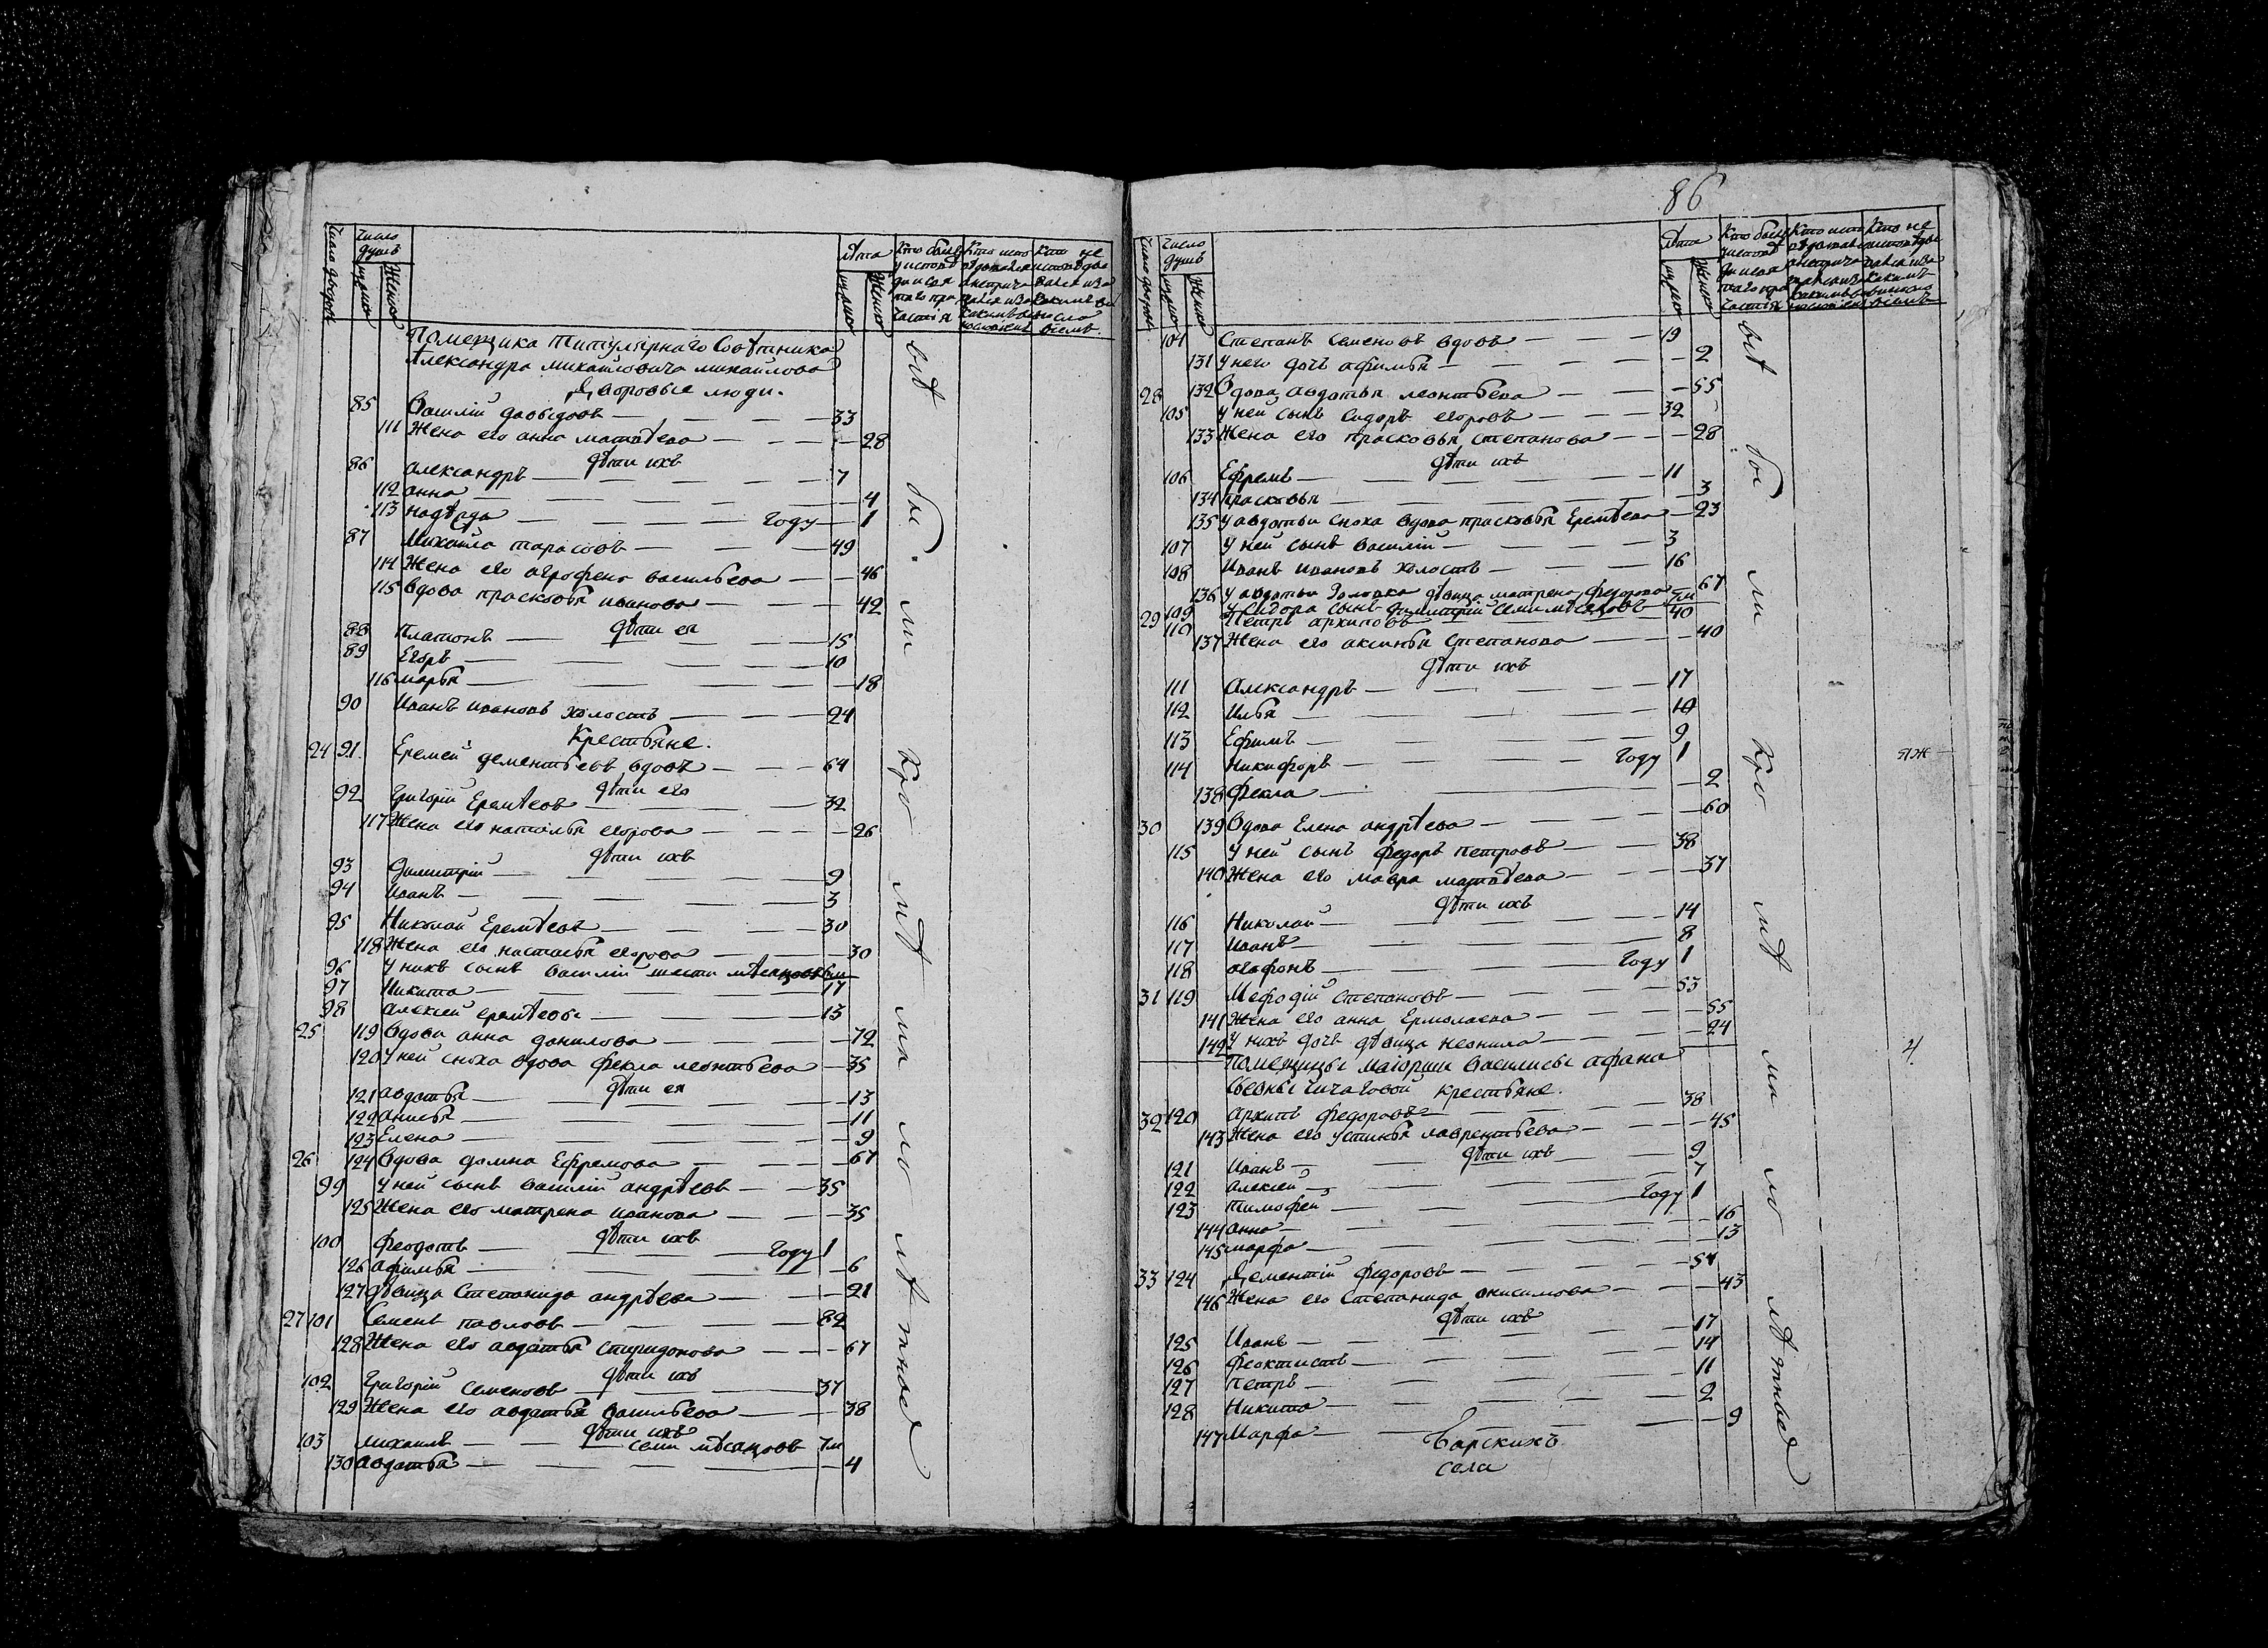 Число дворовъ
Число душъ
мужес
Женск
Лѣта
мужес
Женск
Кто былъ у исповѣди и святаго причастія
Кто исповѣдался а не причащался и за какимъ
Кто не исповѣдывался и за какимъ
Помещика титулярнаго Совѣтника
Александра михайловича михайлова
Дворовые люди.
85 Василій давыдовъ — 33
111 Жена его анна матвѣева — 28
дѣти ихъ
86 александръ — 7
112 анна — 4
113 надѣжда — году — 1
87 Михайла тарасовъ — 49
114 Жена его агрофена васильева — 46
115 Вдова прасковья иванова — 42
дѣти ея
88 Платонъ — 15
89 Егоръ — 10
116 марья — 18
90 Иванъ ивановъ холостъ — 24
Крестьяне.
24 91 Еремей дементьевъ вдовъ — 64
дѣти его
92 Григорій Еремѣевъ — 32
117 Жена его наталья егорова — 26
дѣти ихъ
93 Димитрій — 9
94 Иванъ — 3
95 Николай Еремѣевъ — 30
118 Жена его настасья егорова — 30
96 У нихъ сынъ василій шести мѣсяцовъ 6м
97 Никита — 17
98 алексей еремѣевы — 13
25 119 Вдова анна данилова — 72
120 У ней сноха вдова фекла леонтьева — 35
дѣти ея
121 авдотья — 13
122 анисья — 11
123 Елена — 9
26 124 Вдова домна Ефремова — 67
99 У ней сынъ василій андрѣевъ — 35
125 Жена его матрена иванова — 35
дѣти ихъ
100 Феодотъ — году 1
126 афимья — 6
127 дѣвица Степанида андрѣева — 21
27 101 Семенъ павловъ — 82
128 Жена его авдотья спиридонова — 67
дѣти ихъ
102 Григорій Семеновъ — 37
129 Жена его авдотья васильева — 38
дѣти ихъ
103 михаилъ — семи мѣсяцовъ 7м
130 авдотья — 4
всѣ бы ли кро мѣ ма ло лѣтных
86
Число дворовъ
Число душъ
мужес
Женск
Лѣта
мужес
Женск
104 Степанъ Семеновъ вдовъ — 19
131 У него дочь афимья — 2
28 132 Вдова авдотья леонтьева — 55
105 У ней сынъ Сидоръ егоровъ — 32
133 Жена его прасковья степанова — 28
дѣти ихъ
106 Ефремъ — 11
134 прасковья — 3
135 У авдотьи сноха вдова прасковья Еремѣева — 23
107 У ней сынъ василій — 3
108 Иванъ ивановъ холостъ — 16
136 У авдотьи золовка дѣвица матрена федорова — 67
109 У Сидора сынъ димитрій семи мѣсяцовъ 7м
29 110 Петръ архиповъ — 40
137 Жена его аксинья степанова — 40
дѣти ихъ
111 Александръ — 17
112 Илья — 10
113 Ефимъ — 9
114 Никифоръ — году 1
138 Фекла — 2
30 139 Вдова Елена андрѣева — 60
115 У ней сынъ федоръ петровъ — 38
140 Жена его мавра матвѣева — 37
дѣти ихъ
116 Николай — 14
117 Иванъ — 8
118 агафонъ — году 1
31 119 Мефодій Степановъ — 53
141 Жена его анна Ермолаева — 55
142 У нихъ дочь дѣвица неонила — 24
Помещицы маіорши василисы афана
сьевны Чичаговой крестьяне.
32 120 архипъ федоровъ — 38
143 Жена его устинья лаврентьева — 45
дѣти ихъ
121 Иванъ — 9
122 алексей — 7
123 тимофей — году 1
144 анна — 16
145 марфа — 13
33 124 Дементій федоровъ — 51
146 Жена его Степанида анисимова — 43
дѣти ихъ
125 Иванъ — 17
126 Феоктистъ — 14
127 Петръ — 11
128 Никита — 2
147 Марфа — 9
всѣ бы ли кро мѣ ма ло лѣтных
села